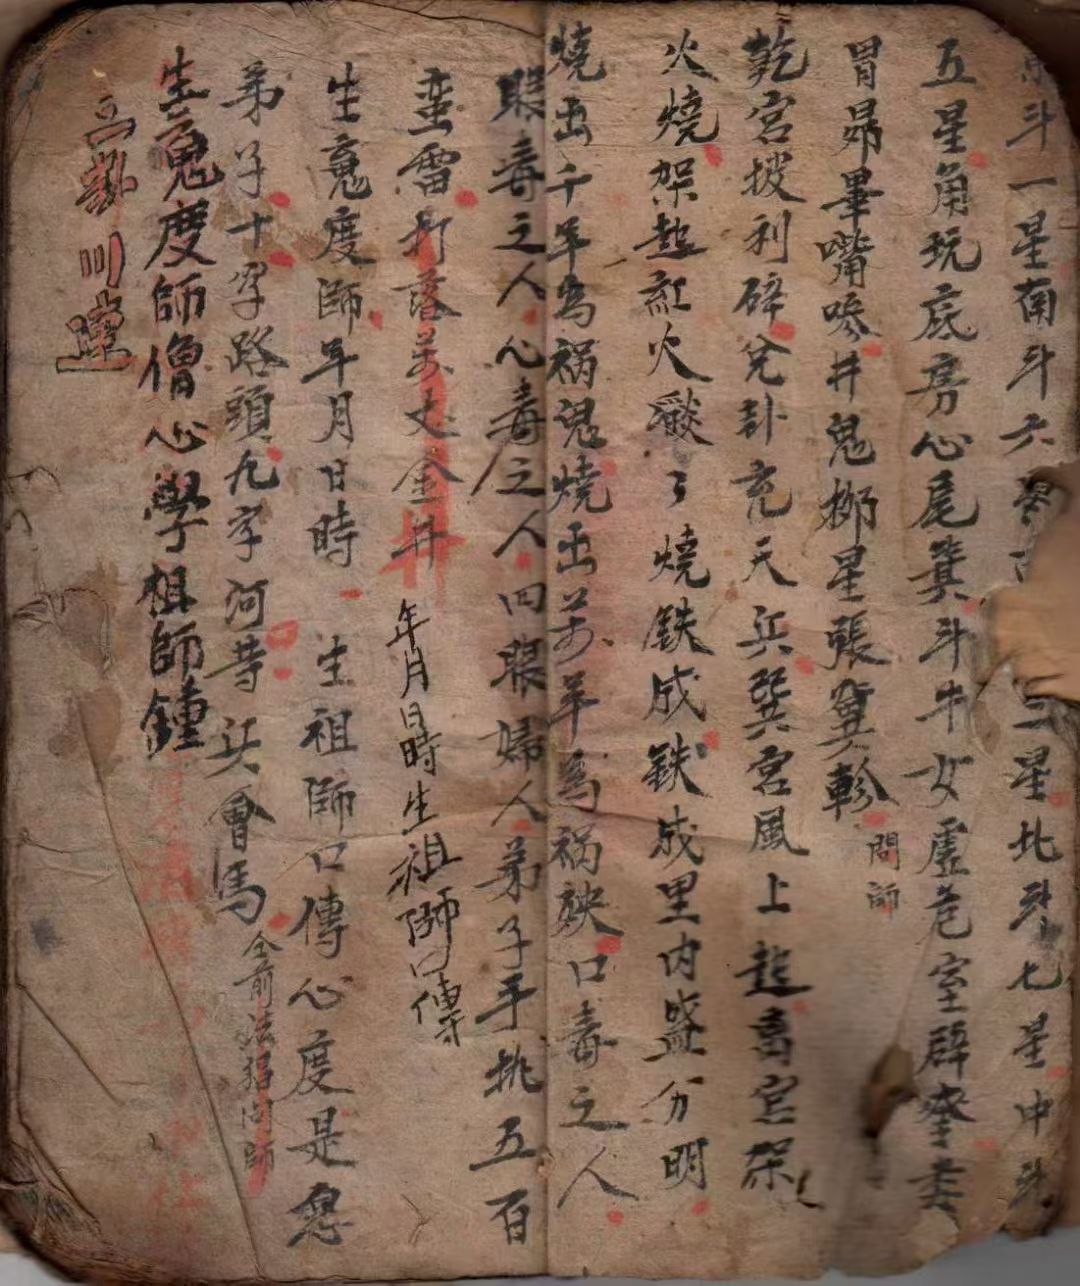 斗一星南斗六星三星北斗七星中斗
五星角玩底房心尾箕斗牛女虛危室辟奎娄
胃昴畢嘴嘇井鬼栁星張翼軫 問師
乾宮披利碎兌卦充天兵巽宮風上起离宮架
火燒架起紅火燄々燒鉄成鉄成里内盛分明
燒出千年為禍鬼燒出万年為禍殃口毒之人
眼毒之人心毒之人四眼婦人弟子手挑五百
蛮雷打落万丈金井 年月日時生祖師口傳
生魂度師年月日時 生祖師口傳心度是急
弟子十字路頭九字河昔兵會馬 全前法招問師
生魂度師僧心學祖師鍾
立卦川